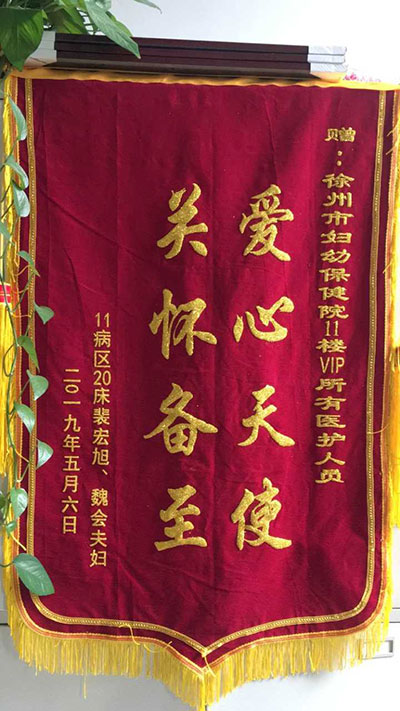 赠：徐州市妇幼保健院11楼VIP所有医护人员
爱心天使
关怀备至
11病区20床裴宏旭、魏会夫妇
二〇一九年五月六日